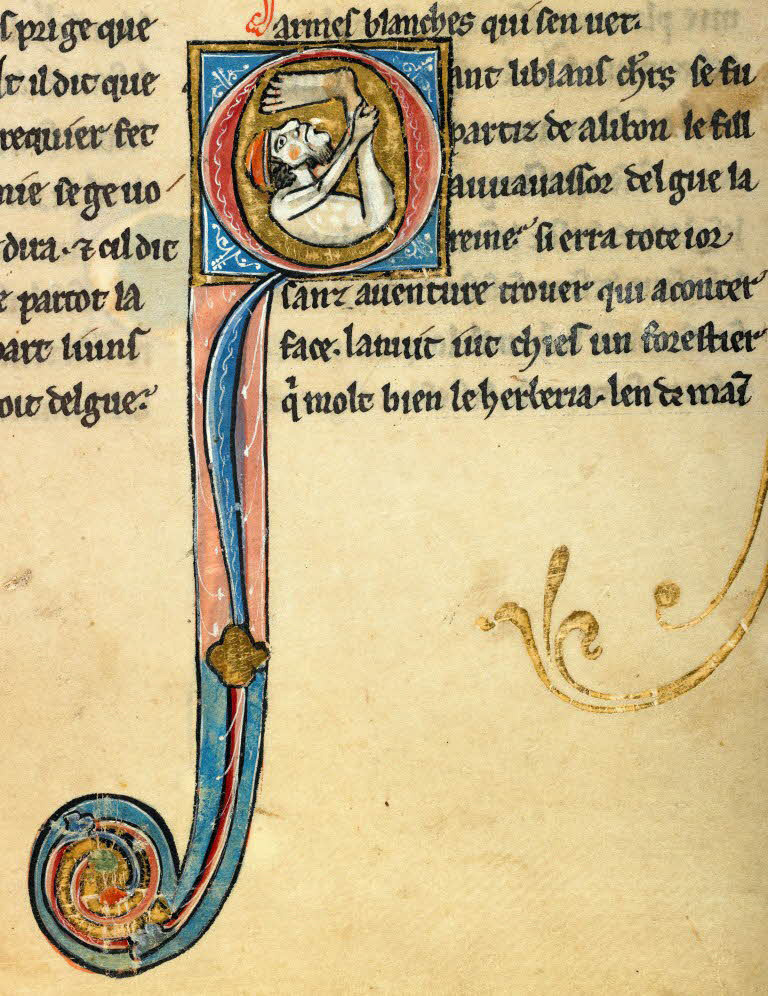 s prige que
lt il dit que
requier fet
nie se ge uo
dira. ⁊ cil dit
e partot la
part liuns
oit del gue.
armes blanches qui sen uet.
Qant li blans chrs se fu
partiz de alibon le fill
au uauassor del gue la
reine. si erra tote ior
sanz auenture trouer qui a conter
face. la nuit iut chies un forestier
qͥ molt bien le herberia. len demaī